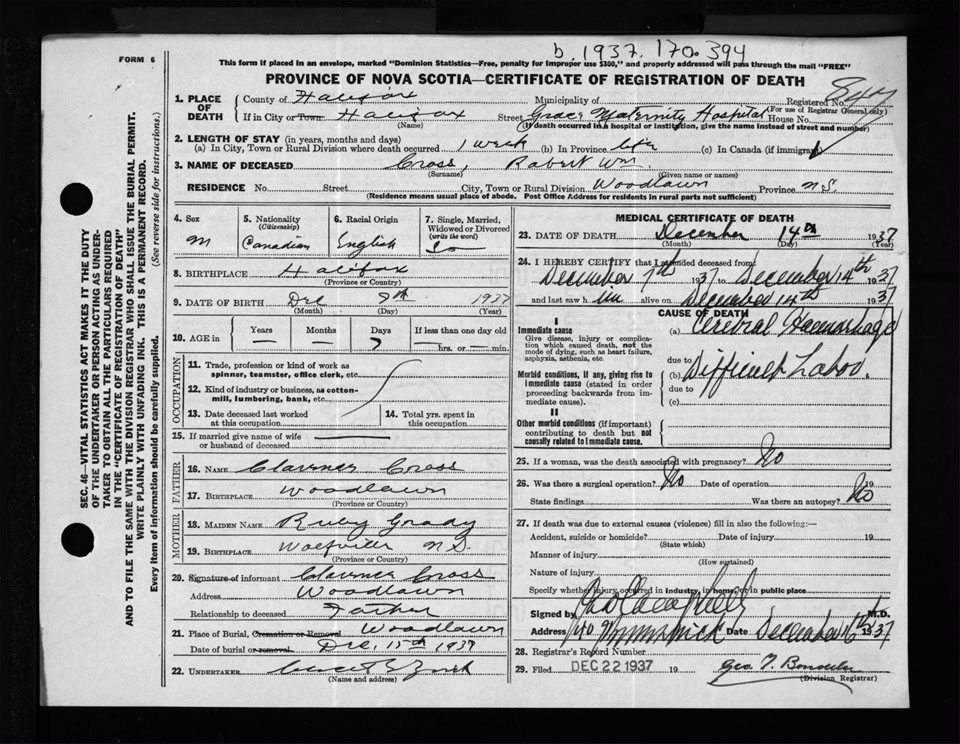 b. 1937. 170. 394
FORM 6
This form if placed in an envelope, marked "Dominion Statistics—Free, penalty for improper use $300," and properly addressed will pass through the mail "FREE"
PROVINCE OF NOVA SCOTIA—CERTIFICATE OF REGISTRATION OF DEATH
1. PLACE OF DEATH
County of Halifax Municipality of Registered No.
(For use of Registrar General only)
If in City or Town Halifax Street Grace Maternity Hospital House No.
(Name) (If death occurred in a hospital or institution, give the name instead of street and number)
2. LENGTH OF STAY (in years, months and days)
(a) In City, Town or Rural Division where death occurred 1 week (b) In Province life (c) In Canada (if immigrant)
3. NAME OF DECEASED Cross, Robert Wm
(Surname) (Given name or names)
RESIDENCE No. Street City, Town or Rural Division Woodlawn Province N.S.
(Residence means usual place of abode. Post Office Address for residents in rural parts not sufficient)
4. Sex M
5. Nationality (Citizenship) Canadian
6. Racial Origin English
7. Single, Married, Widowed or Divorced (write the word)
8. BIRTHPLACE Halifax
(Province or County)
9. DATE OF BIRTH Dec 7th 1937
(Month) (Day) (Year)
10. AGE in Years — Months — Days 7 If less than one day old — hrs. or — min.
OCCUPATION
11. Trade, profession or kind of work as spinner, teamster, office clerk, etc.
12. Kind of industry or business, as cotton-mill, lumbering, bank, etc.
13. Date deceased last worked at this occupation
14. Total yrs. spent in this occupation
15. If married give name of wife or husband of deceased
FATHER
16. NAME Clarence Cross
17. BIRTHPLACE Woodlawn
(Province or County)
MOTHER
18. MAIDEN NAME Ruby Grady
19. BIRTHPLACE Wolfville N.S.
(Province or Country)
20. Signature of informant Clarence Cross
Address Woodlawn
Relationship to deceased Father
21. Place of Burial, Cremation or Removal Woodlawn
Date of burial or removal Dec, 15th 1937
22. UNDERTAKER
(Name and address)
MEDICAL CERTIFICATE OF DEATH
23. DATE OF DEATH December 14th 1937
(Month) (Day) (Year)
24. I HEREBY CERTIFY that I attended deceased from
December 7th 1937 to December 14th 1937
and last saw him alive on December 14th 1937
CAUSE OF DEATH
I
Immediate cause
Give disease, injury or complication which caused death, not the mode of dying, such as heart failure, asphyxia, asthenia, etc.
(a) Cerebral Haemorrhage
due to
Morbid conditions, if any, giving rise to immediate cause (stated in order proceeding backwards from immediate cause).
(b) Difficult Labor.
due to
(c)
II
Other morbid conditions (if important) contributing to death but not causally related to immediate cause.
25. If a woman, was the death associated with pregnancy? No
26. Was there a surgical operation? No Date of operation 19
State findings Was there an autopsy? No
27. If death was due to external causes (violence) fill in also the following:—
Accident, suicide or homicide? Date of injury 19
(State which)
Manner of injury
(How sustained)
Nature of injury
Specify whether injury occurred in industry, in home, or in public place
Signed by M.D.
Address Date December 16th 1937
28. Registrar's Record Number
29. Filed DEC 22 1937 19
(Division Registrar)
SEC. 46—VITAL STATISTICS ACT MAKES IT THE DUTY
OF THE UNDERTAKER OR PERSON ACTING AS UNDERTAKER
TO OBTAIN ALL THE PARTICULARS REQUIRED
IN THE "CERTIFICATE OF REGISTRATION OF DEATH"
AND TO FILE THE SAME WITH THE DIVISION REGISTRAR WHO SHALL ISSUE THE BURIAL PERMIT.
WRITE PLAINLY WITH UNFADING INK. THIS IS A PERMANENT RECORD.
Every item of information should be carefully supplied. (See reverse side for instructions.)